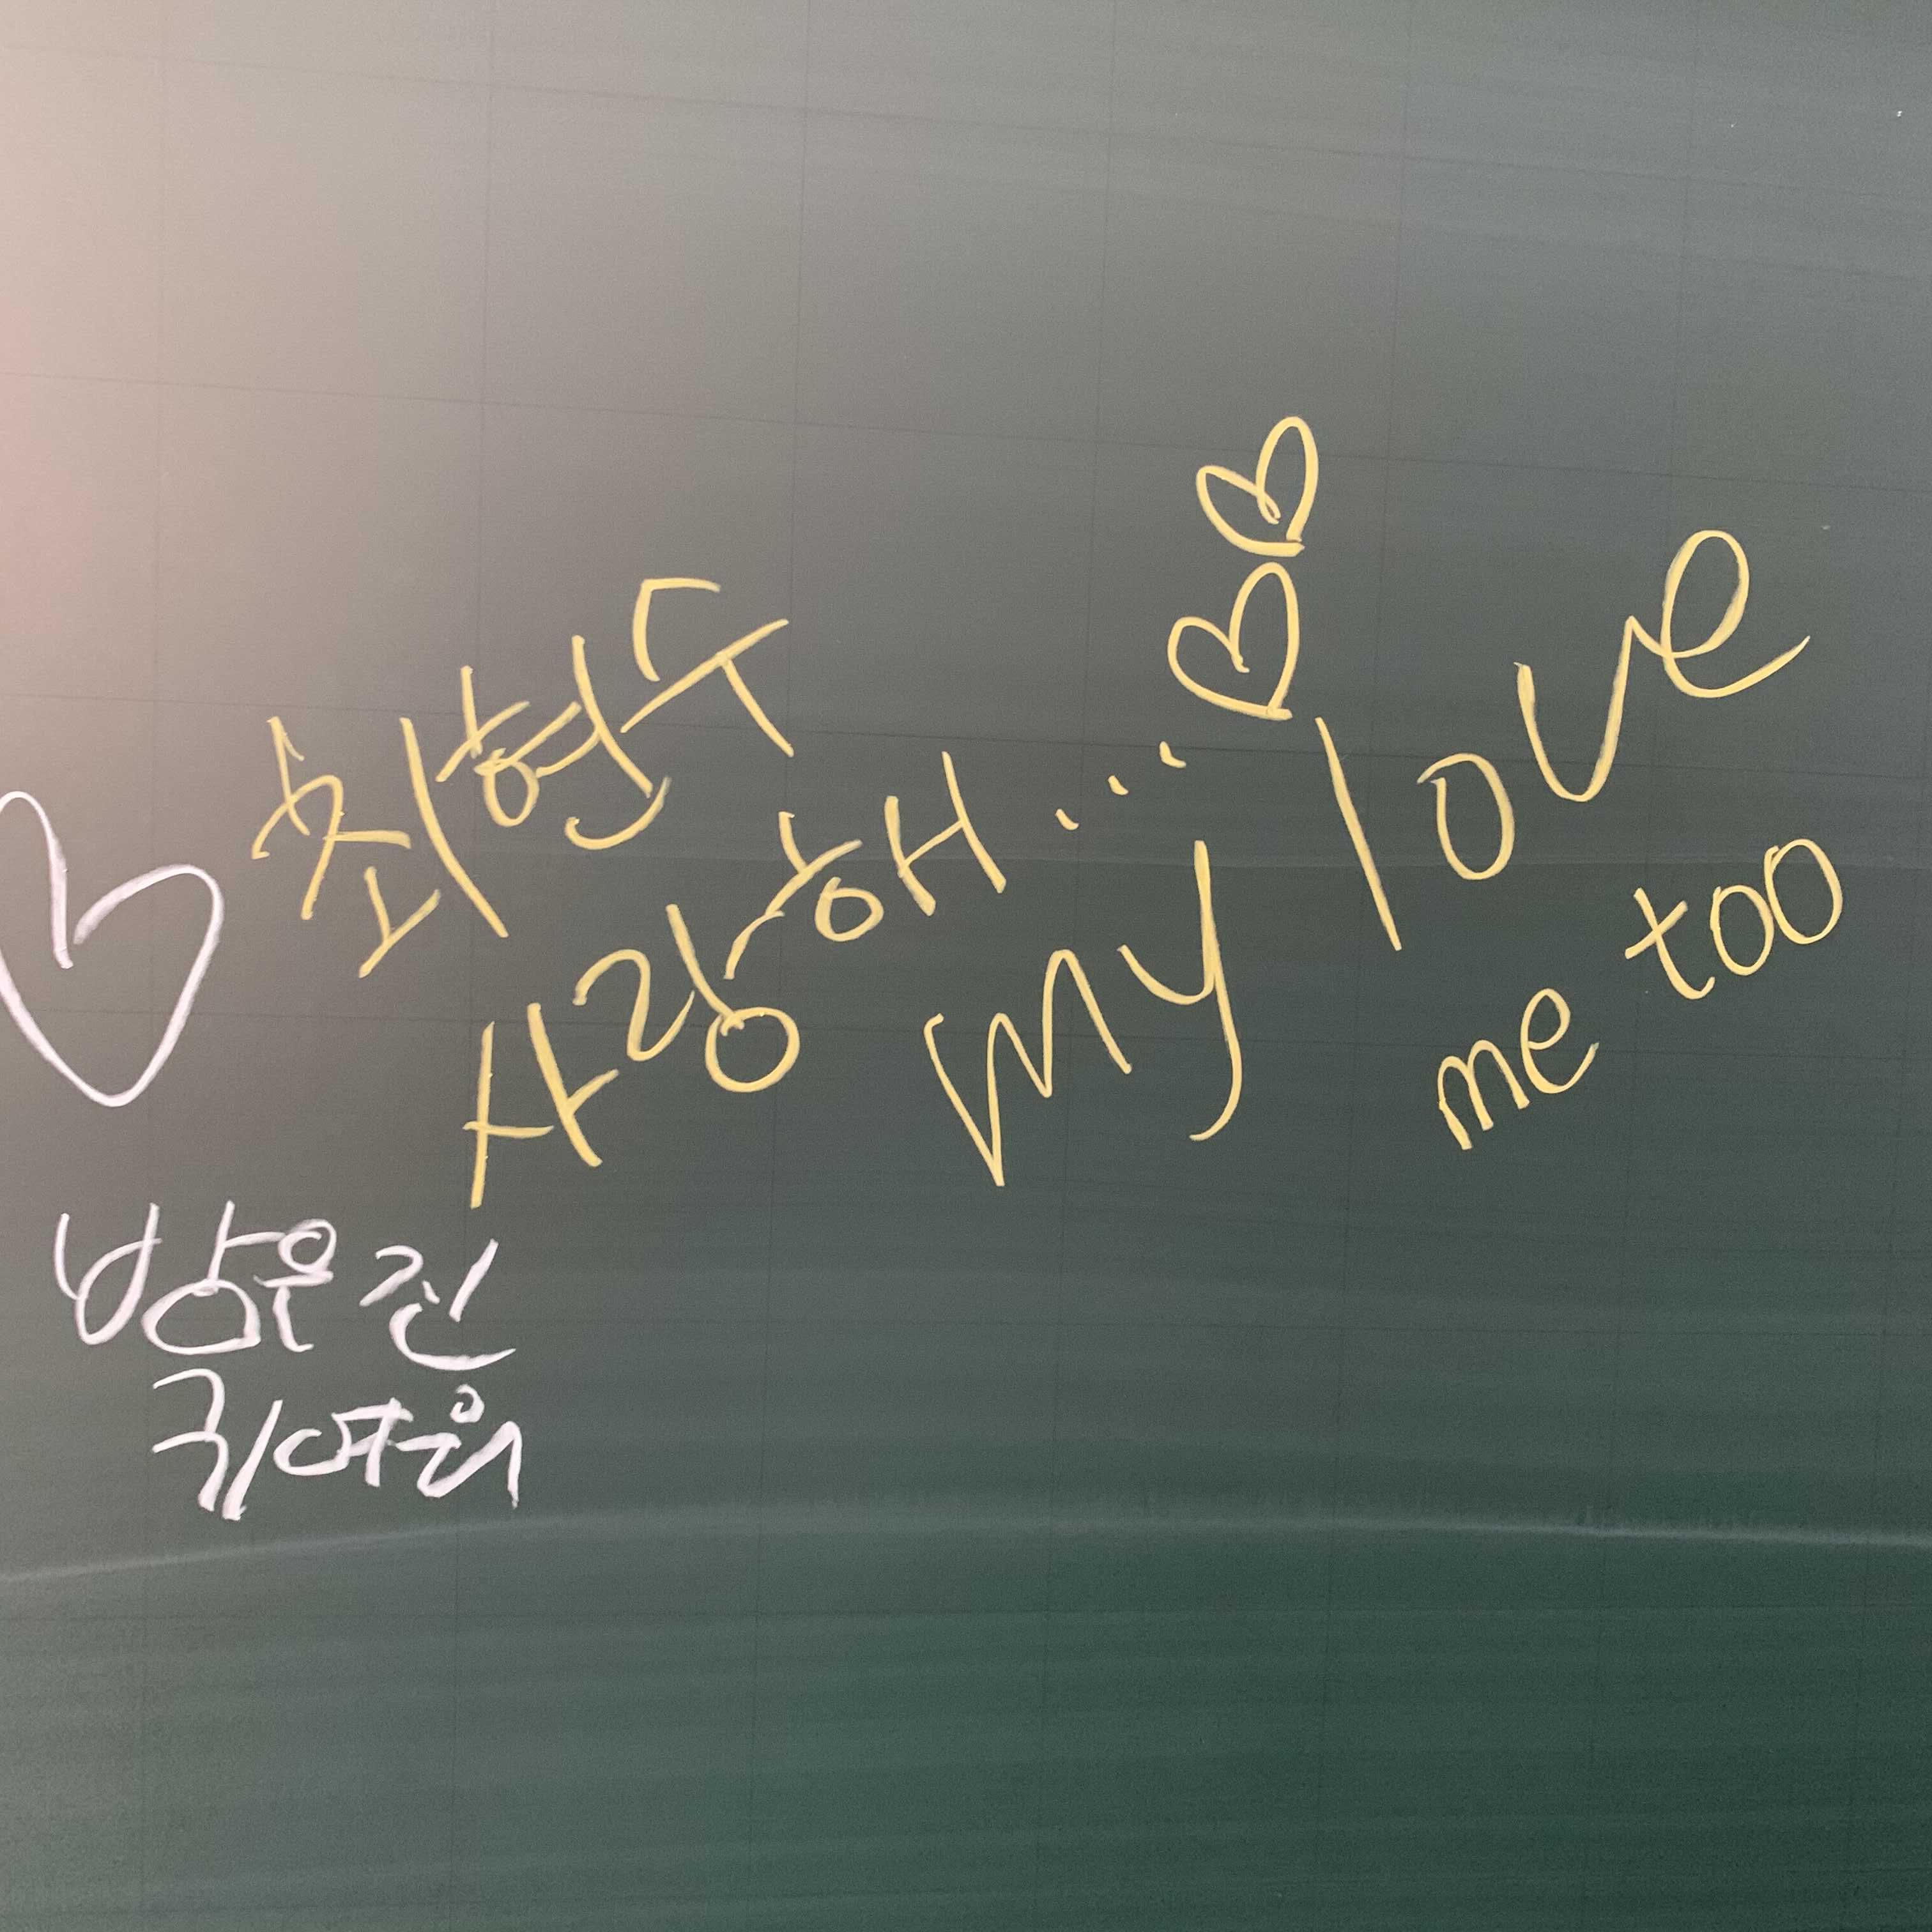 최형두
사랑해...
my love
me too
방은진
귀여워